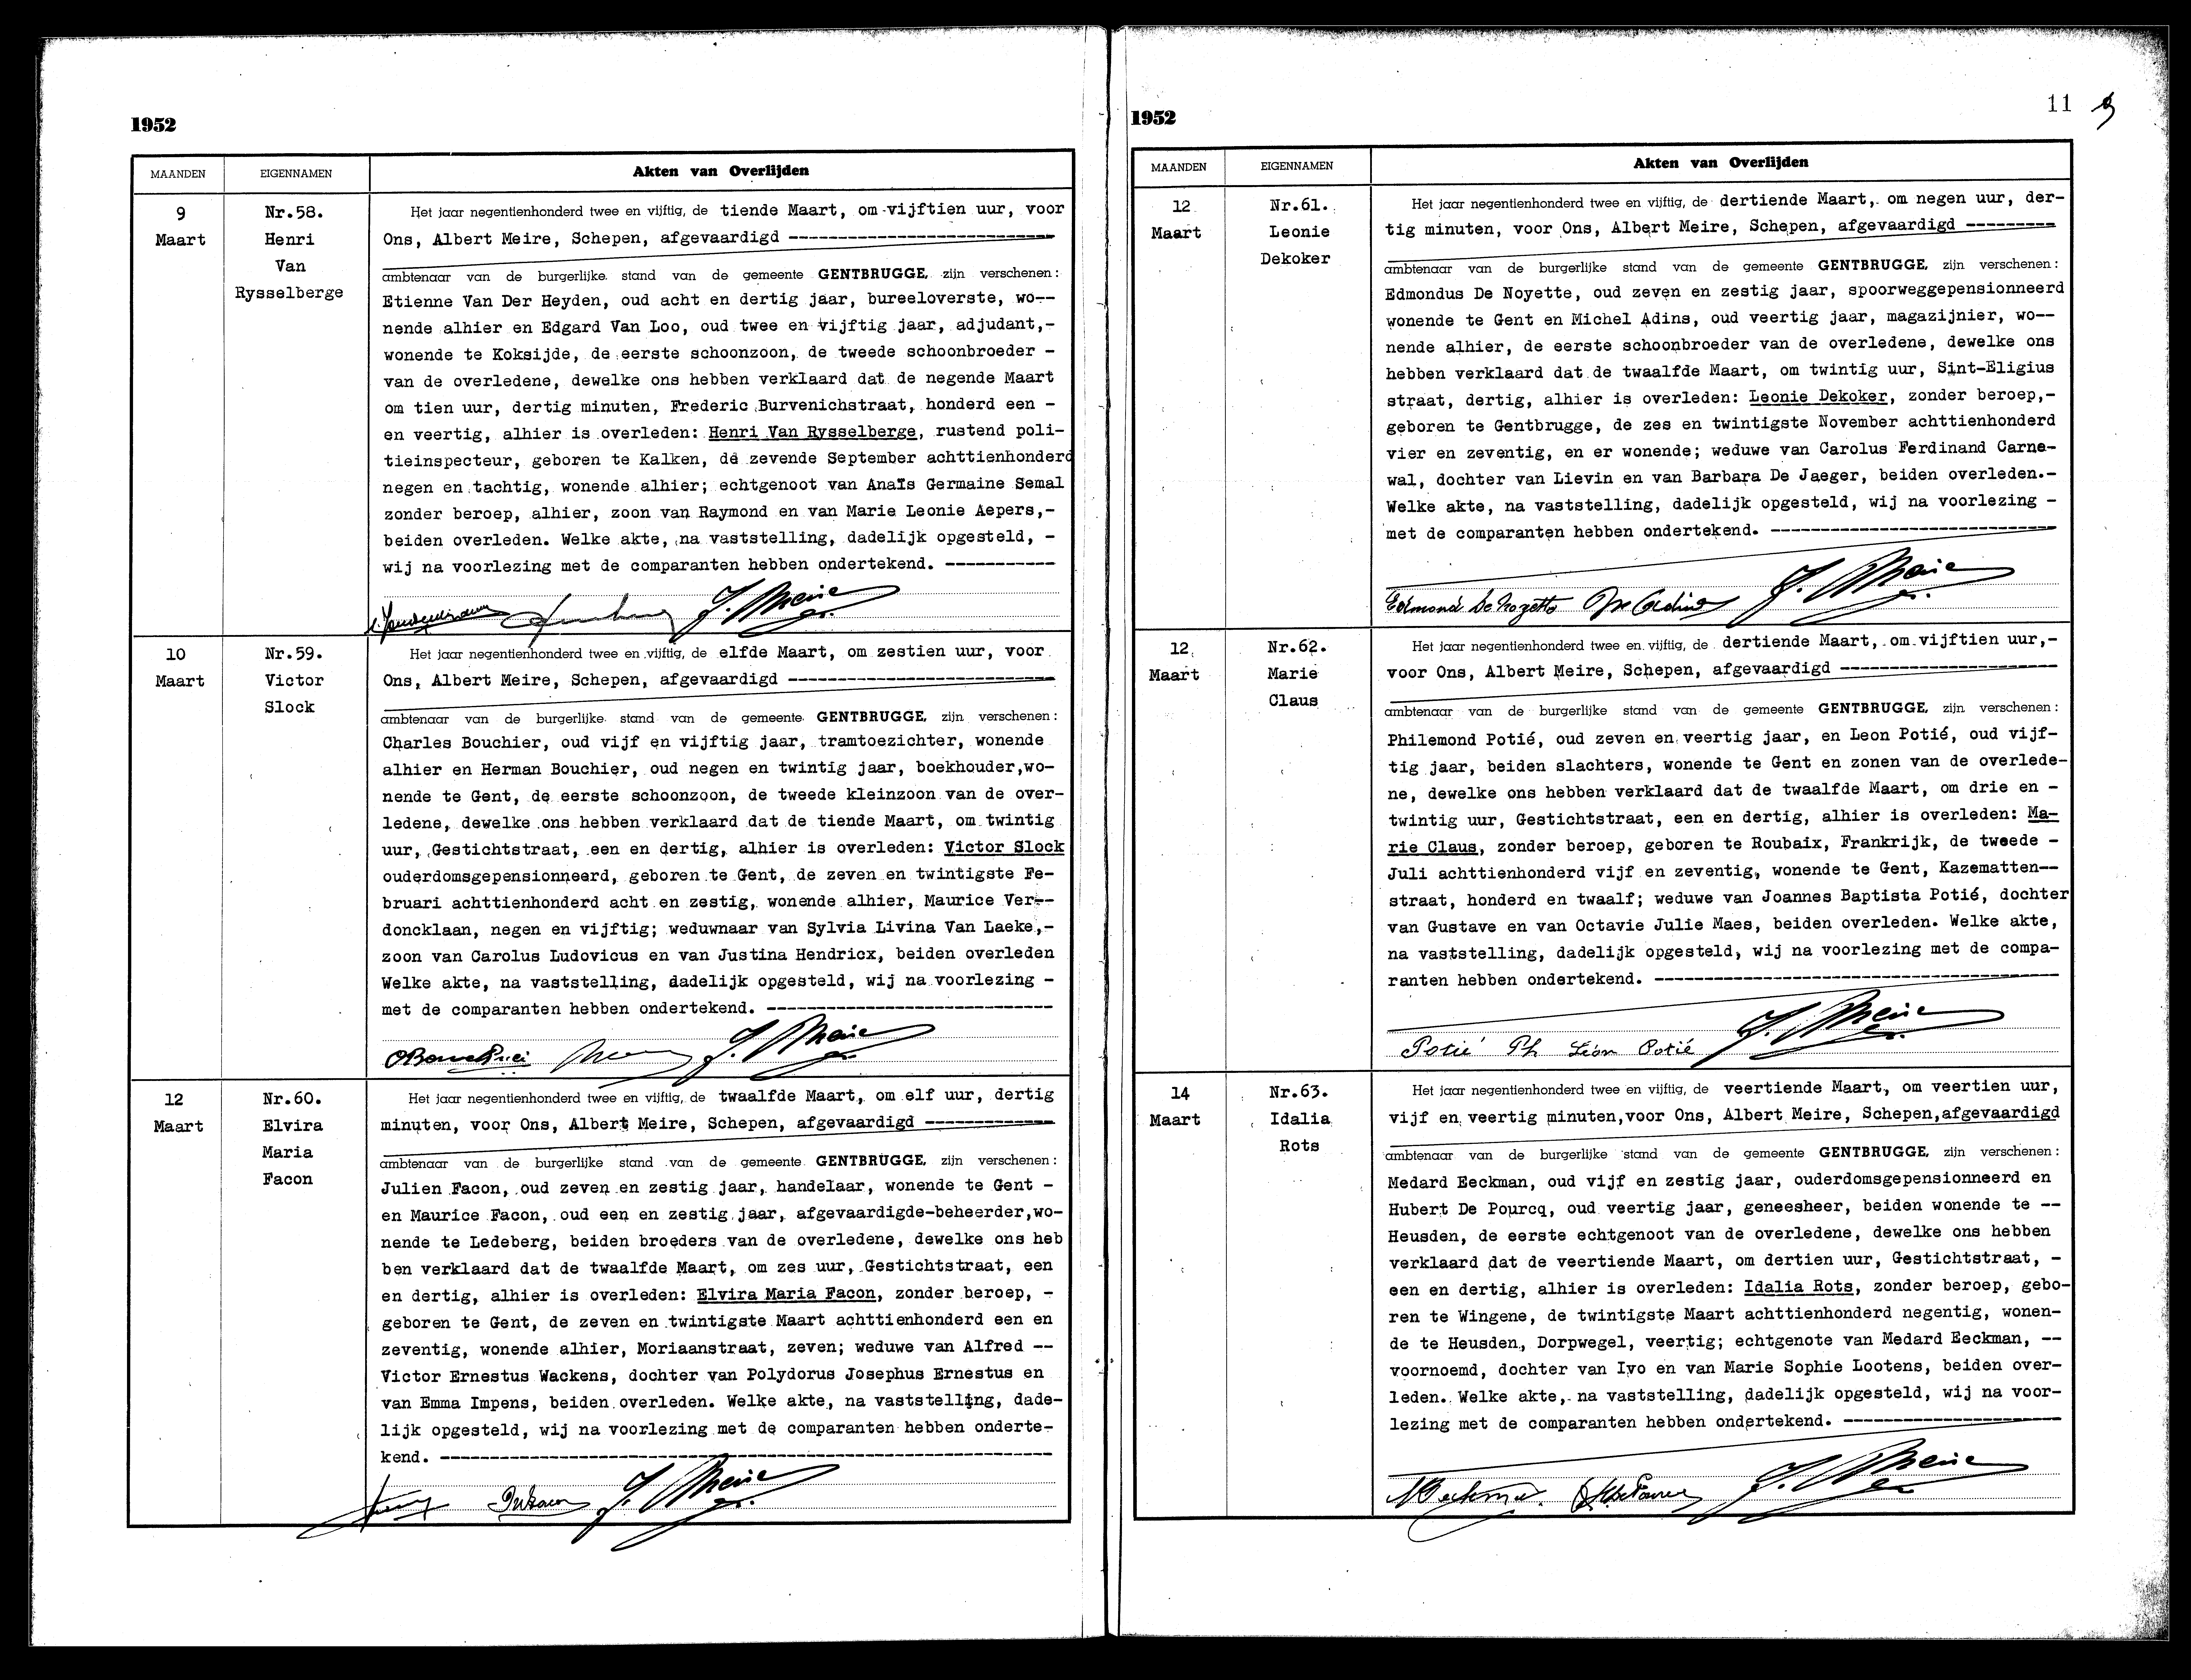 1952
MAANDEN EIGENNAMEN Akten van Overlijden
9
Maart
Nr.58.
Henri
Van
Rysselberge
Het jaar negentienhonderd twee en vijftig, de tiende Maart, om vijftien uur, voor
Ons, Albert Meire, Schepen, afgevaardigd --------------------------
ambtenaar van de burgerlijke stand van de gemeente GENTBRUGGE, zijn verschenen:
Etienne Van Der Heyden, oud acht en dertig jaar, bureeloverste, wo--
nende alhier en Edgard Van Loo, oud twee en vijftig jaar, adjudant,-
wonende te Koksijde, de eerste schoonzoon, de tweede schoonbroeder -
van de overledene, dewelke ons hebben verklaard dat de negende Maart
om tien uur, dertig minuten, Frederic Burvenichstraat, honderd een -
en veertig, alhier is overleden: Henri Van Rysselberge, rustend poli-
tieinspecteur, geboren te Kalken, de zevende September achttienhonderd
negen en tachtig, wonende alhier; echtgenoot van Anaïs Germaine Semal
zonder beroep, alhier, zoon van Raymond en van Marie Leonie Aepers,-
beiden overleden. Welke akte, na vaststelling, dadelijk opgesteld, -
wij na voorlezing met de comparanten hebben ondertekend. -----------
10
Maart
Nr.59.
Victor
Slock
Het jaar negentienhonderd twee en vijftig, de elfde Maart, om zestien uur, voor
Ons, Albert Meire, Schepen, afgevaardigd --------------------------
ambtenaar van de burgerlijke stand van de gemeente GENTBRUGGE, zijn verschenen:
Charles Bouchier, oud vijf en vijftig jaar, tramtoezichter, wonende
alhier en Herman Bouchier, oud negen en twintig jaar, boekhouder,wo-
nende te Gent, de eerste schoonzoon, de tweede kleinzoon van de over-
ledene, dewelke ons hebben verklaard dat de tiende Maart, om twintig
uur, Gestichtstraat, een en dertig, alhier is overleden: Victor Slock
ouderdomsgepensionneerd, geboren te Gent, de zeven en twintigste Fe-
bruari achttienhonderd acht en zestig, wonende alhier, Maurice Ver--
doncklaan, negen en vijftig; weduwnaar van Sylvia Livina Van Laeke,-
zoon van Carolus Ludovicus en van Justina Hendricx, beiden overleden
Welke akte, na vaststelling, dadelijk opgesteld, wij na voorlezing -
met de comparanten hebben ondertekend. ----------------------------
12
Maart
Nr.60.
Elvira
Maria
Facon
Het jaar negentienhonderd twee en vijftig, de twaalfde Maart, om elf uur, dertig
minuten, voor Ons, Albert Meire, Schepen, afgevaardigd -------------
ambtenaar van de burgerlijke stand van de gemeente GENTBRUGGE, zijn verschenen:
Julien Facon, oud zeven en zestig jaar, handelaar, wonende te Gent -
en Maurice Facon, oud een en zestig jaar, afgevaardigde-beheerder,wo-
nende te Ledeberg, beiden broeders van de overledene, dewelke ons heb
ben verklaard dat de twaalfde Maart, om zes uur, Gestichtstraat, een
en dertig, alhier is overleden: Elvira Maria Facon, zonder beroep, -
geboren te Gent, de zeven en twintigste Maart achttienhonderd een en
zeventig, wonende alhier, Moriaanstraat, zeven; weduwe van Alfred --
Victor Ernestus Wackens, dochter van Polydorus Josephus Ernestus en
van Emma Impens, beiden overleden. Welke akte, na vaststelling, dade-
lijk opgesteld, wij na voorlezing met de comparanten hebben onderte-
kend. -------------------------------------------------------------
11
1952
MAANDEN EIGENNAMEN Akten van Overlijden
12
Maart
Nr.61.
Leonie
Dekoker
Het jaar negentienhonderd twee en vijftig, de dertiende Maart, om negen uur, der-
tig minuten, voor Ons, Albert Meire, Schepen, afgevaardigd ---------
ambtenaar van de burgerlijke stand van de gemeente GENTBRUGGE, zijn verschenen:
Edmondus De Noyette, oud zeven en zestig jaar, spoorweggepensionneerd
wonende te Gent en Michel Adins, oud veertig jaar, magazijnier, wo--
nende alhier, de eerste schoonbroeder van de overledene, dewelke ons
hebben verklaard dat de twaalfde Maart, om twintig uur, Sint-Eligius
straat, dertig, alhier is overleden: Leonie Dekoker, zonder beroep,-
geboren te Gentbrugge, de zes en twintigste November achttienhonderd
vier en zeventig, en er wonende; weduwe van Carolus Ferdinand Carne-
wal, dochter van Lievin en van Barbara De Jaeger, beiden overleden.-
Welke akte, na vaststelling, dadelijk opgesteld, wij na voorlezing -
met de comparanten hebben ondertekend. ----------------------------
Edmond De Noyette
12
Maart
Nr.62.
Marie
Claus
Het jaar negentienhonderd twee en vijftig, de dertiende Maart, om vijftien uur,-
voor Ons, Albert Meire, Schepen, afgevaardigd ---------------------
ambtenaar van de burgerlijke stand van de gemeente GENTBRUGGE, zijn verschenen:
Philemond Potié, oud zeven en veertig jaar, en Leon Potié, oud vijf-
tig jaar, beiden slachters, wonende te Gent en zonen van de overlede-
ne, dewelke ons hebben verklaard dat de twaalfde Maart, om drie en -
twintig uur, Gestichtstraat, een en dertig, alhier is overleden: Ma-
rie Claus, zonder beroep, geboren te Roubaix, Frankrijk, de tweede -
Juli achttienhonderd vijf en zeventig, wonende te Gent, Kazematten--
straat, honderd en twaalf; weduwe van Joannes Baptista Potié, dochter
van Gustave en van Octavie Julie Maes, beiden overleden. Welke akte,
na vaststelling, dadelijk opgesteld, wij na voorlezing met de compa-
ranten hebben ondertekend. ----------------------------------------
Potié Ph Léon Potié
14
Maart
Nr.63.
Idalia
Rots
Het jaar negentienhonderd twee en vijftig, de veertiende Maart, om veertien uur,
vijf en veertig minuten,voor Ons, Albert Meire, Schepen,afgevaardigd
ambtenaar van de burgerlijke stand van de gemeente GENTBRUGGE, zijn verschenen:
Medard Eeckman, oud vijf en zestig jaar, ouderdomsgepensionneerd en
Hubert De Pourcq, oud veertig jaar, geneesheer, beiden wonende te --
Heusden, de eerste echtgenoot van de overledene, dewelke ons hebben
verklaard dat de veertiende Maart, om dertien uur, Gestichtstraat, -
een en dertig, alhier is overleden: Idalia Rots, zonder beroep, gebo-
ren te Wingene, de twintigste Maart achttienhonderd negentig, wonen-
de te Heusden, Dorpwegel, veertig; echtgenote van Medard Eeckman, --
voornoemd, dochter van Ivo en van Marie Sophie Lootens, beiden over-
leden. Welke akte, na vaststelling, dadelijk opgesteld, wij na voor-
lezing met de comparanten hebben ondertekend. ---------------------